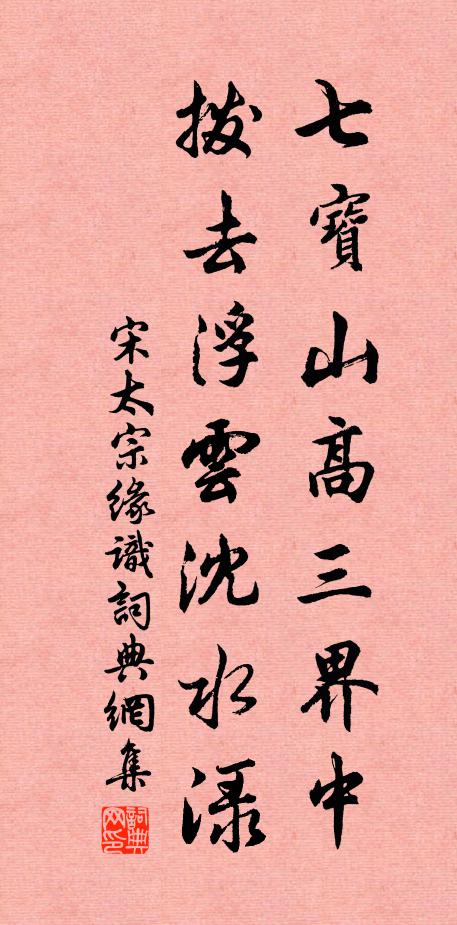 七寶山髙三界中
拨去浮雲沈水渌
宋太宗緣識詞典網集
詞典
网印